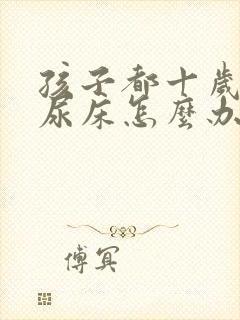 孩子都十歲
尿床怎麼办
傅冥